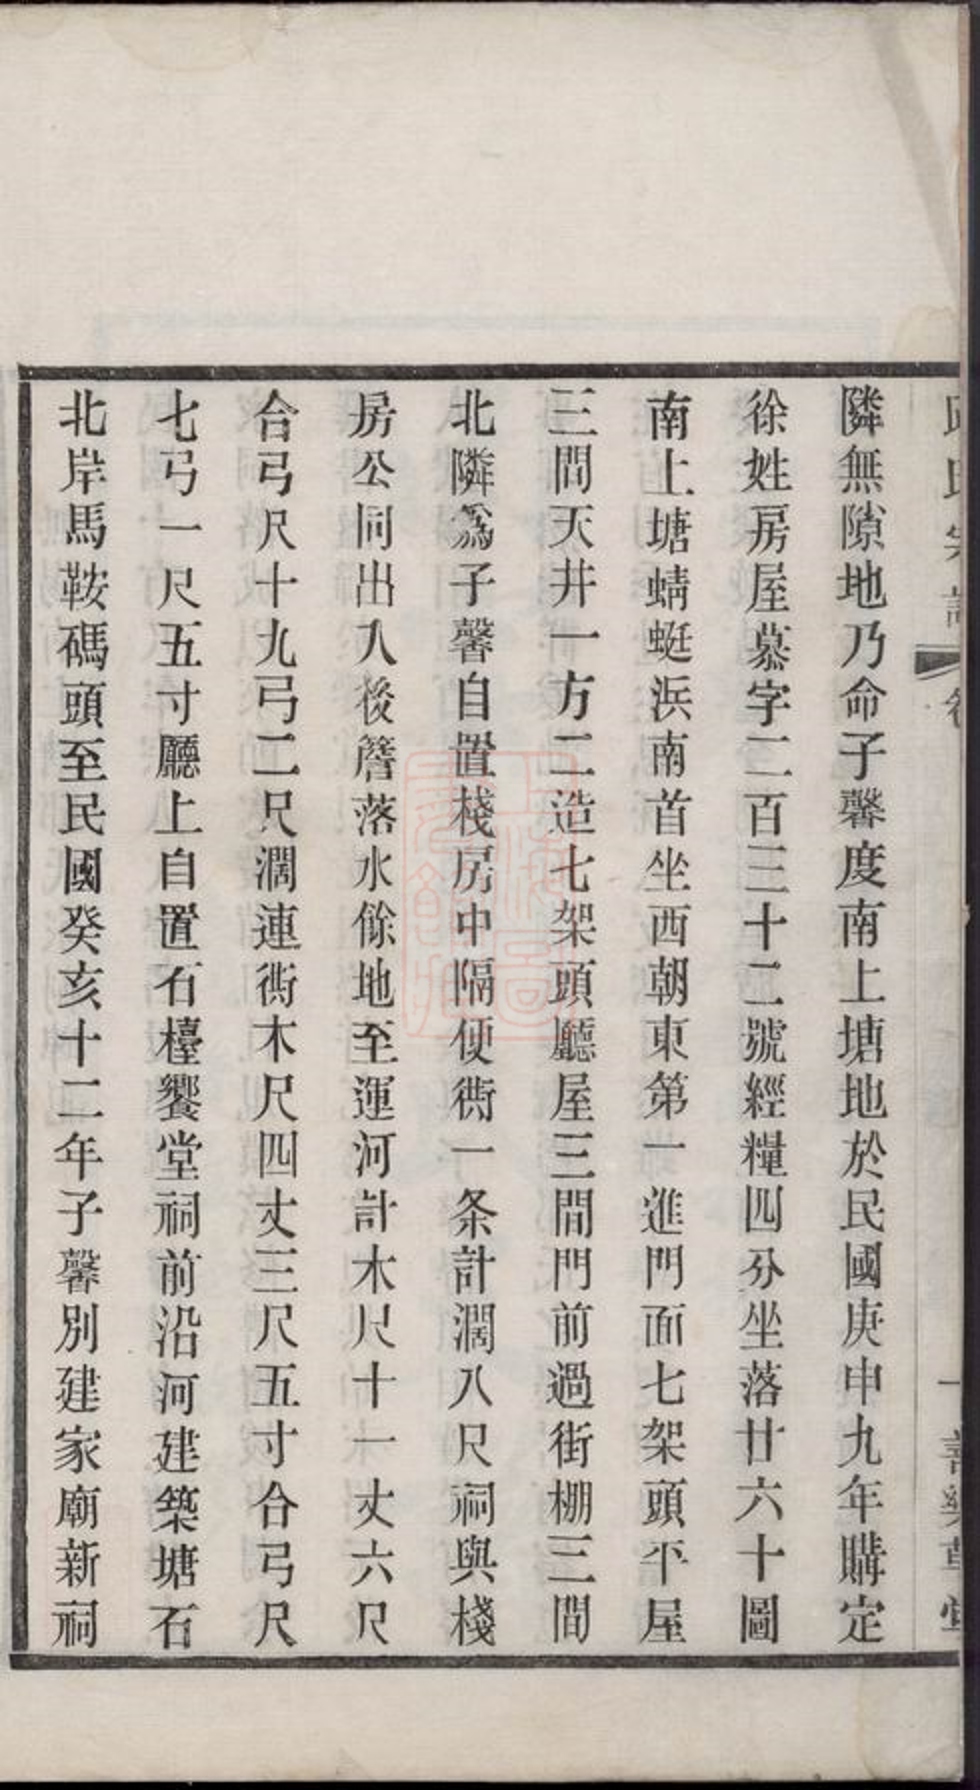 隣無隙地乃命子馨度南上塘地於民國庚申九年購定
徐姓房屋慕字二百三十二號經糧四分坐落廿六十圖
南上塘蜻蜓浜南首坐西朝東第一進門面七架頭平屋
三間天井一方二造七架頭廳屋三間門前過街棚三間
北隣爲子馨自置棧房中隔便衖一条計濶八尺祠與棧
房公同出入後簷落水餘地至運河計木尺十一丈六尺
合弓尺十九弓二尺濶連衖木尺四丈三尺五寸合弓尺
七弓一尺五寸廳上自置石檯饗堂祠前沿河建築塘石
北岸馬鞍碼頭至民國癸亥十二年子馨別建家廟新祠